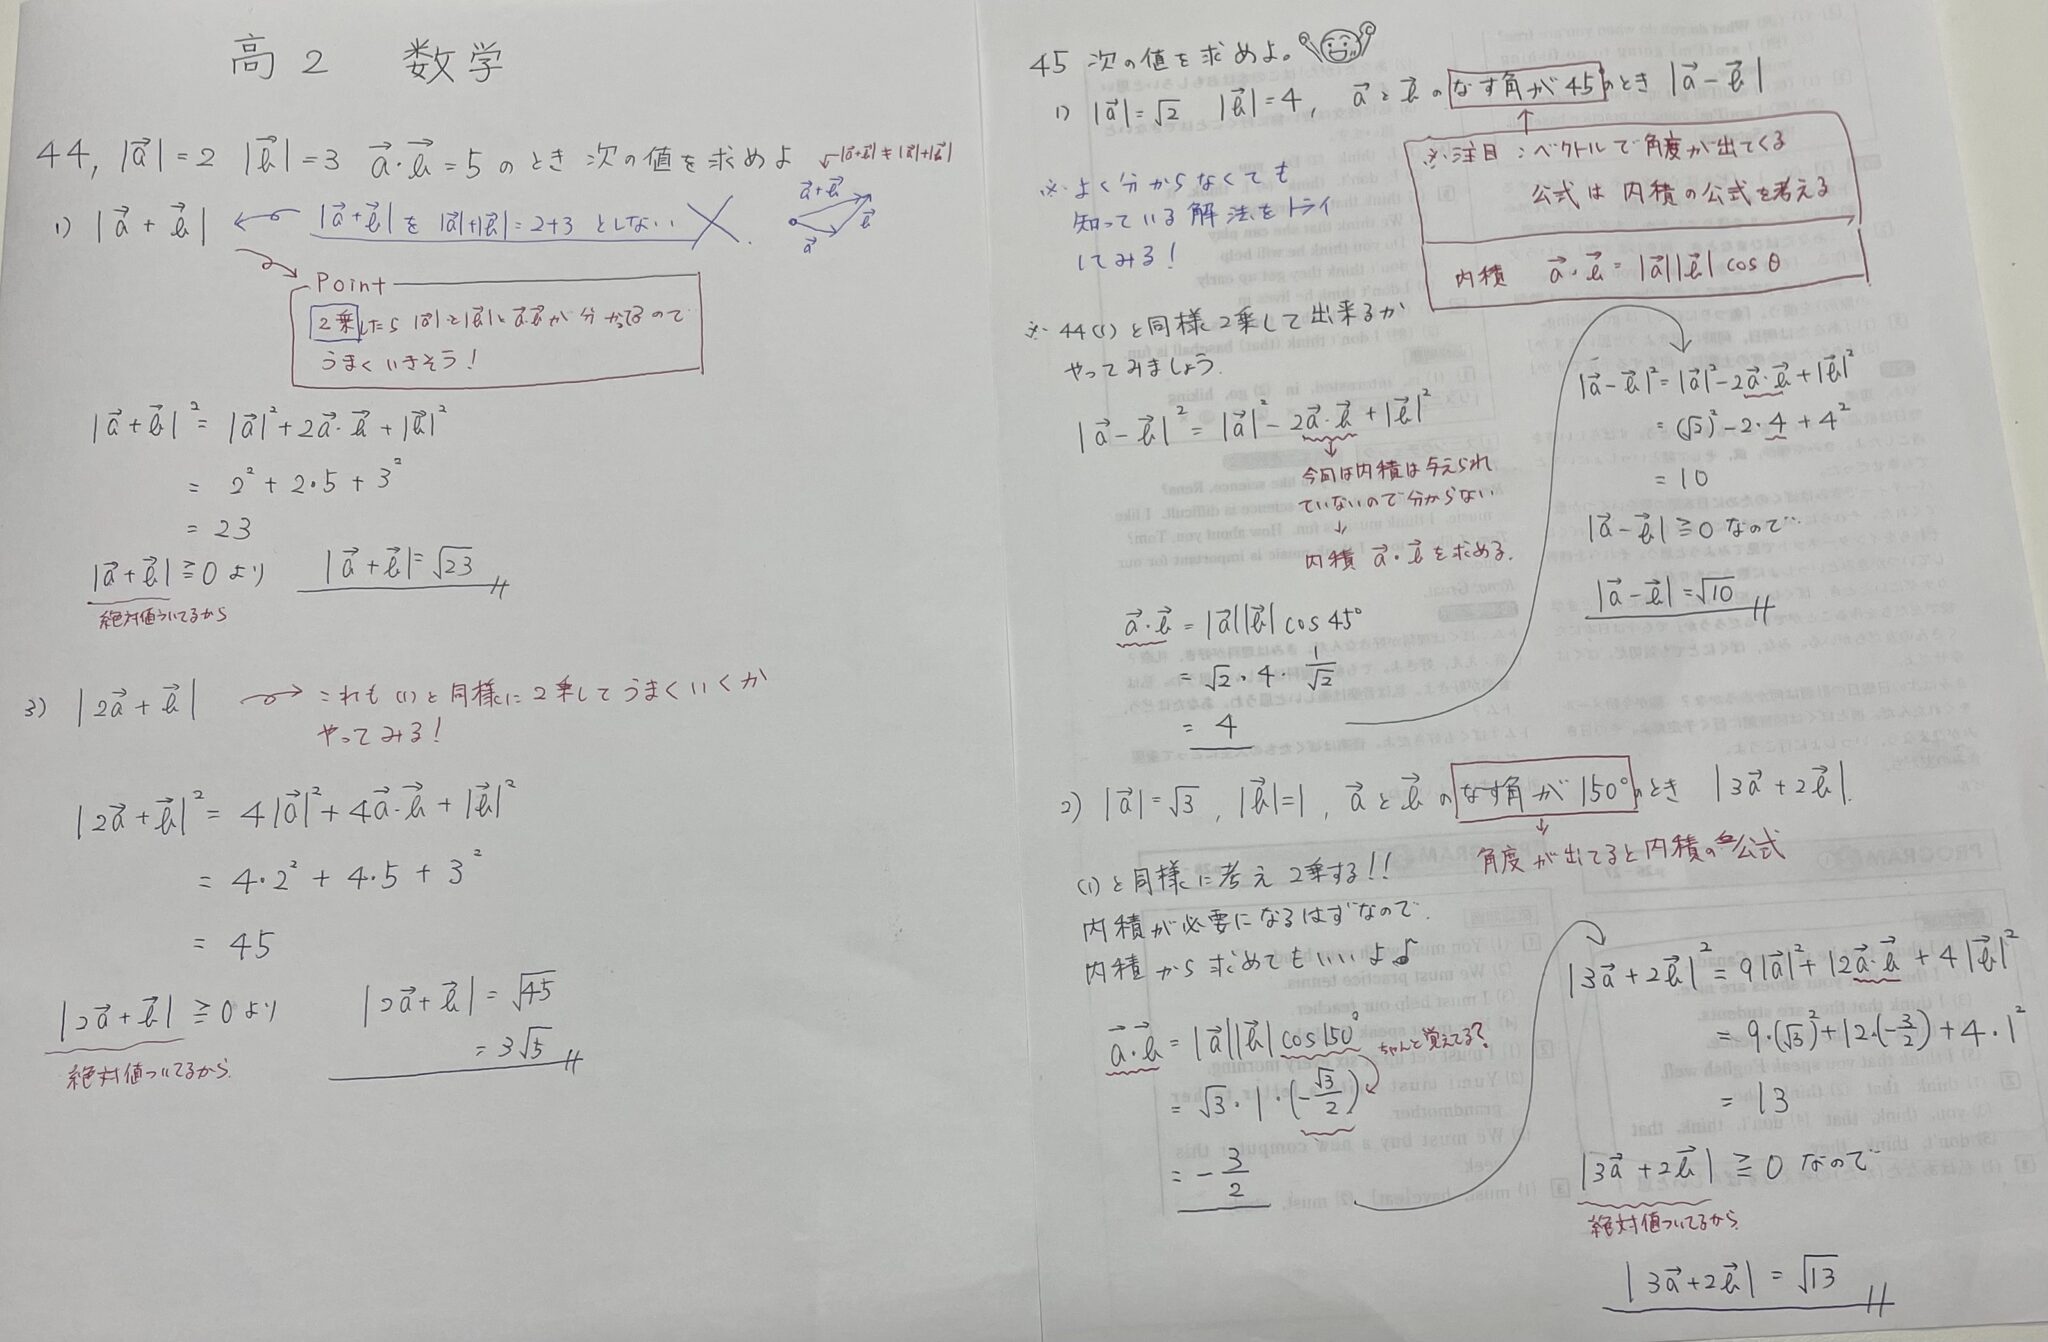 高2 数学
44, |a⃗|=2 |b⃗|=3 a⃗・b⃗=5のとき 次の値を求めよ
|a⃗+b⃗|≠|a⃗|+|b⃗|
1) |a⃗+b⃗|
|a⃗+b⃗|を |a⃗|+|b⃗|=2+3 としない
a⃗+b⃗
a⃗
b⃗
Point
2乗したら |a⃗|と|b⃗|と a⃗・b⃗が 分かってるので
うまくいきそう!
|a⃗+b⃗|²=|a⃗|²+2a⃗・b⃗+|b⃗|²
= 2²+2・5+3²
= 23
|a⃗+b⃗|≧0より |a⃗+b⃗|=√23
絶対値ついてるから
3) |2a⃗+b⃗|
これも(1)と同様に2乗してうまくいくか
やってみる!
|2a⃗+b⃗|²=4|a⃗|²+4a⃗・b⃗+|b⃗|²
= 4・2²+4・5+3²
= 45
|2a⃗+b⃗|≧0より |2a⃗+b⃗|=√45
= 3√5
絶対値ついてるから
45 次の値を求めよ。
1) |a⃗|=√2 |b⃗|=4, a⃗とb⃗のなす角が45°のとき |a⃗-b⃗|
※注目:ベクトルで角度が出てくる
公式は内積の公式を考える
内積 a⃗・b⃗=|a⃗||b⃗|cosθ
※よく分からなくても
知っている解法をトライ
してみる!
※44(1)と同様2乗して出来るか
やってみましょう.
|a⃗-b⃗|²=|a⃗|²-2a⃗・b⃗+|b⃗|²
今回は内積は与えられ
ていないので分からない
↓
内積 a⃗・b⃗を求める.
a⃗・b⃗=|a⃗||b⃗|cos45°
= √2・4・1/√2
= 4
|a⃗-b⃗|²=|a⃗|²-2a⃗・b⃗+|b⃗|²
= (√2)²-2・4+4²
= 10
|a⃗-b⃗|≧0なので
|a⃗-b⃗|=√10
2) |a⃗|=√3, |b⃗|=1, a⃗とb⃗のなす角が150°のとき |3a⃗+2b⃗|.
角度が出てると内積の公式
(1)と同様に考え2乗する!!
内積が必要になるはずなので
内積から求めてもいいよ♪
a⃗・b⃗=|a⃗||b⃗|cos150°
ちゃんと覚えてる?
= √3・1・(-√3/2)
= -3/2
|3a⃗+2b⃗|²=9|a⃗|²+12a⃗・b⃗+4|b⃗|²
= 9・(√3)²+12・(-3/2)+4・1²
= 13
|3a⃗+2b⃗|≧0なので
絶対値ついてるから
|3a⃗+2b⃗|=√13